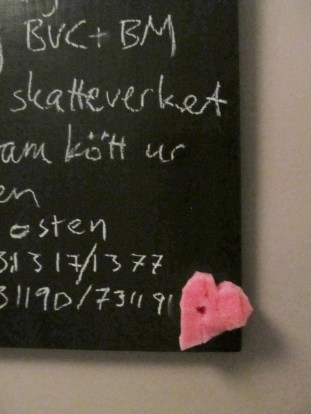 BVC + BM
skatteverket
am kött ur
en
osten
317/1377
31190/731191